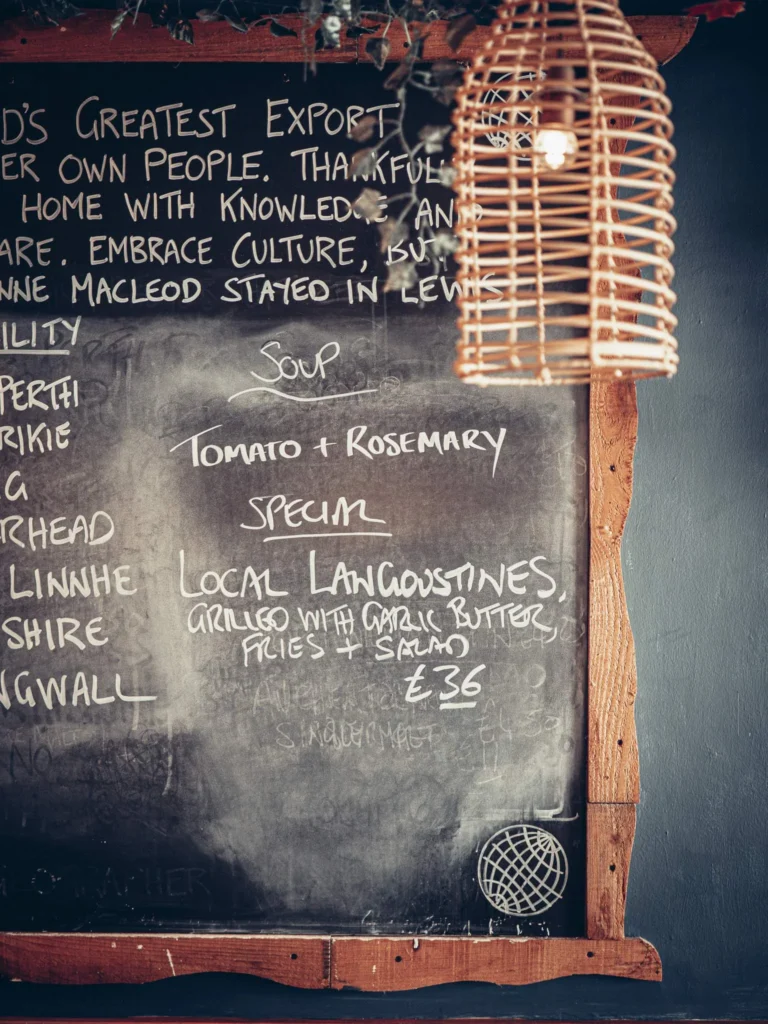 D'S GREATEST EXPORT
ER OWN PEOPLE. THANKFULL
HOME WITH KNOWLEDGE AND
ARE. EMBRACE CULTURE, BUT
NNE MACLEOD STAYED IN LEWIS
ILITY
PERTH
RIKIE
G
RHEAD
LINNHE
SHIRE
NGWALL
SOUP
TOMATO + ROSEMARY
SPECIAL
LOCAL LANGOUSTINES,
GRILLED WITH GARLIC BUTTER,
FRIES + SALAD
£36